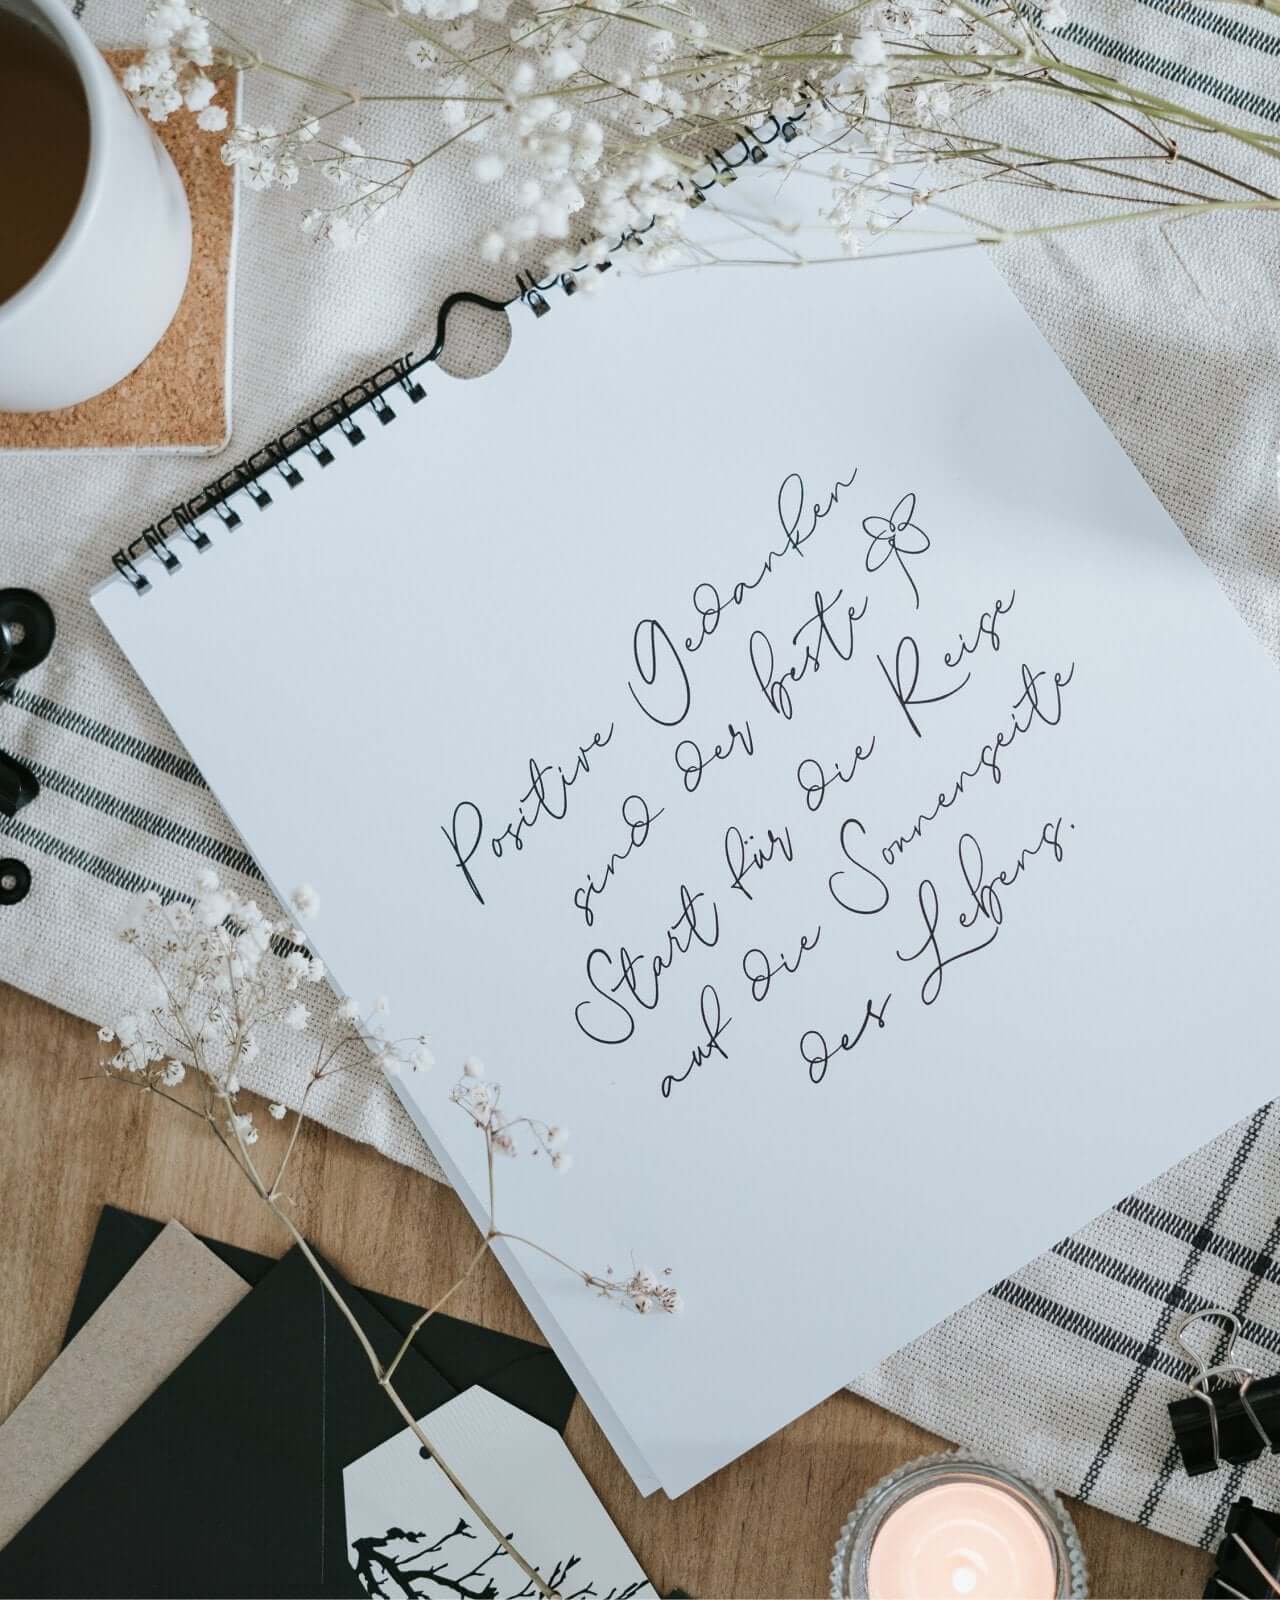 Positive Gedanken
sind der beste
Start für die Reise
auf die Sonnenseite
des Lebens.